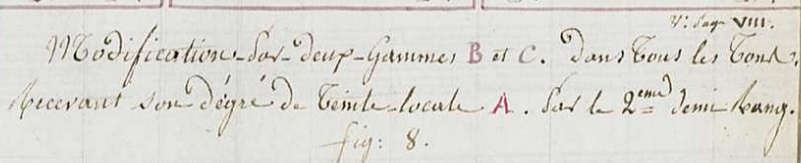 V. pag. VIII.
Modification par deux Gammes B et C. dans tous les tons.
Recevant son dégré de teinte locale A. par le 2eme demi Rang.
fig: 8.